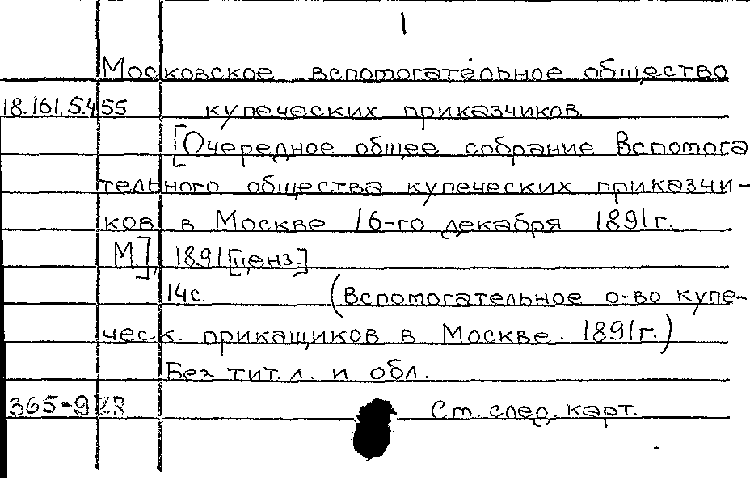 1
Московское вспомогательное общество
18.161.5.455 купеческих приказчиков.
[Очередное общее собрание Вспомога
тельного общества купеческих приказчи-
ков в Москве 16-го декабря 1891г.
М], 1891[ценз]
14с. (Вспомогательное о-во купе-
ческ. прикащиков в Москве. 1891г.)
Без тит. л. и обл.
365-928 См. след. карт.